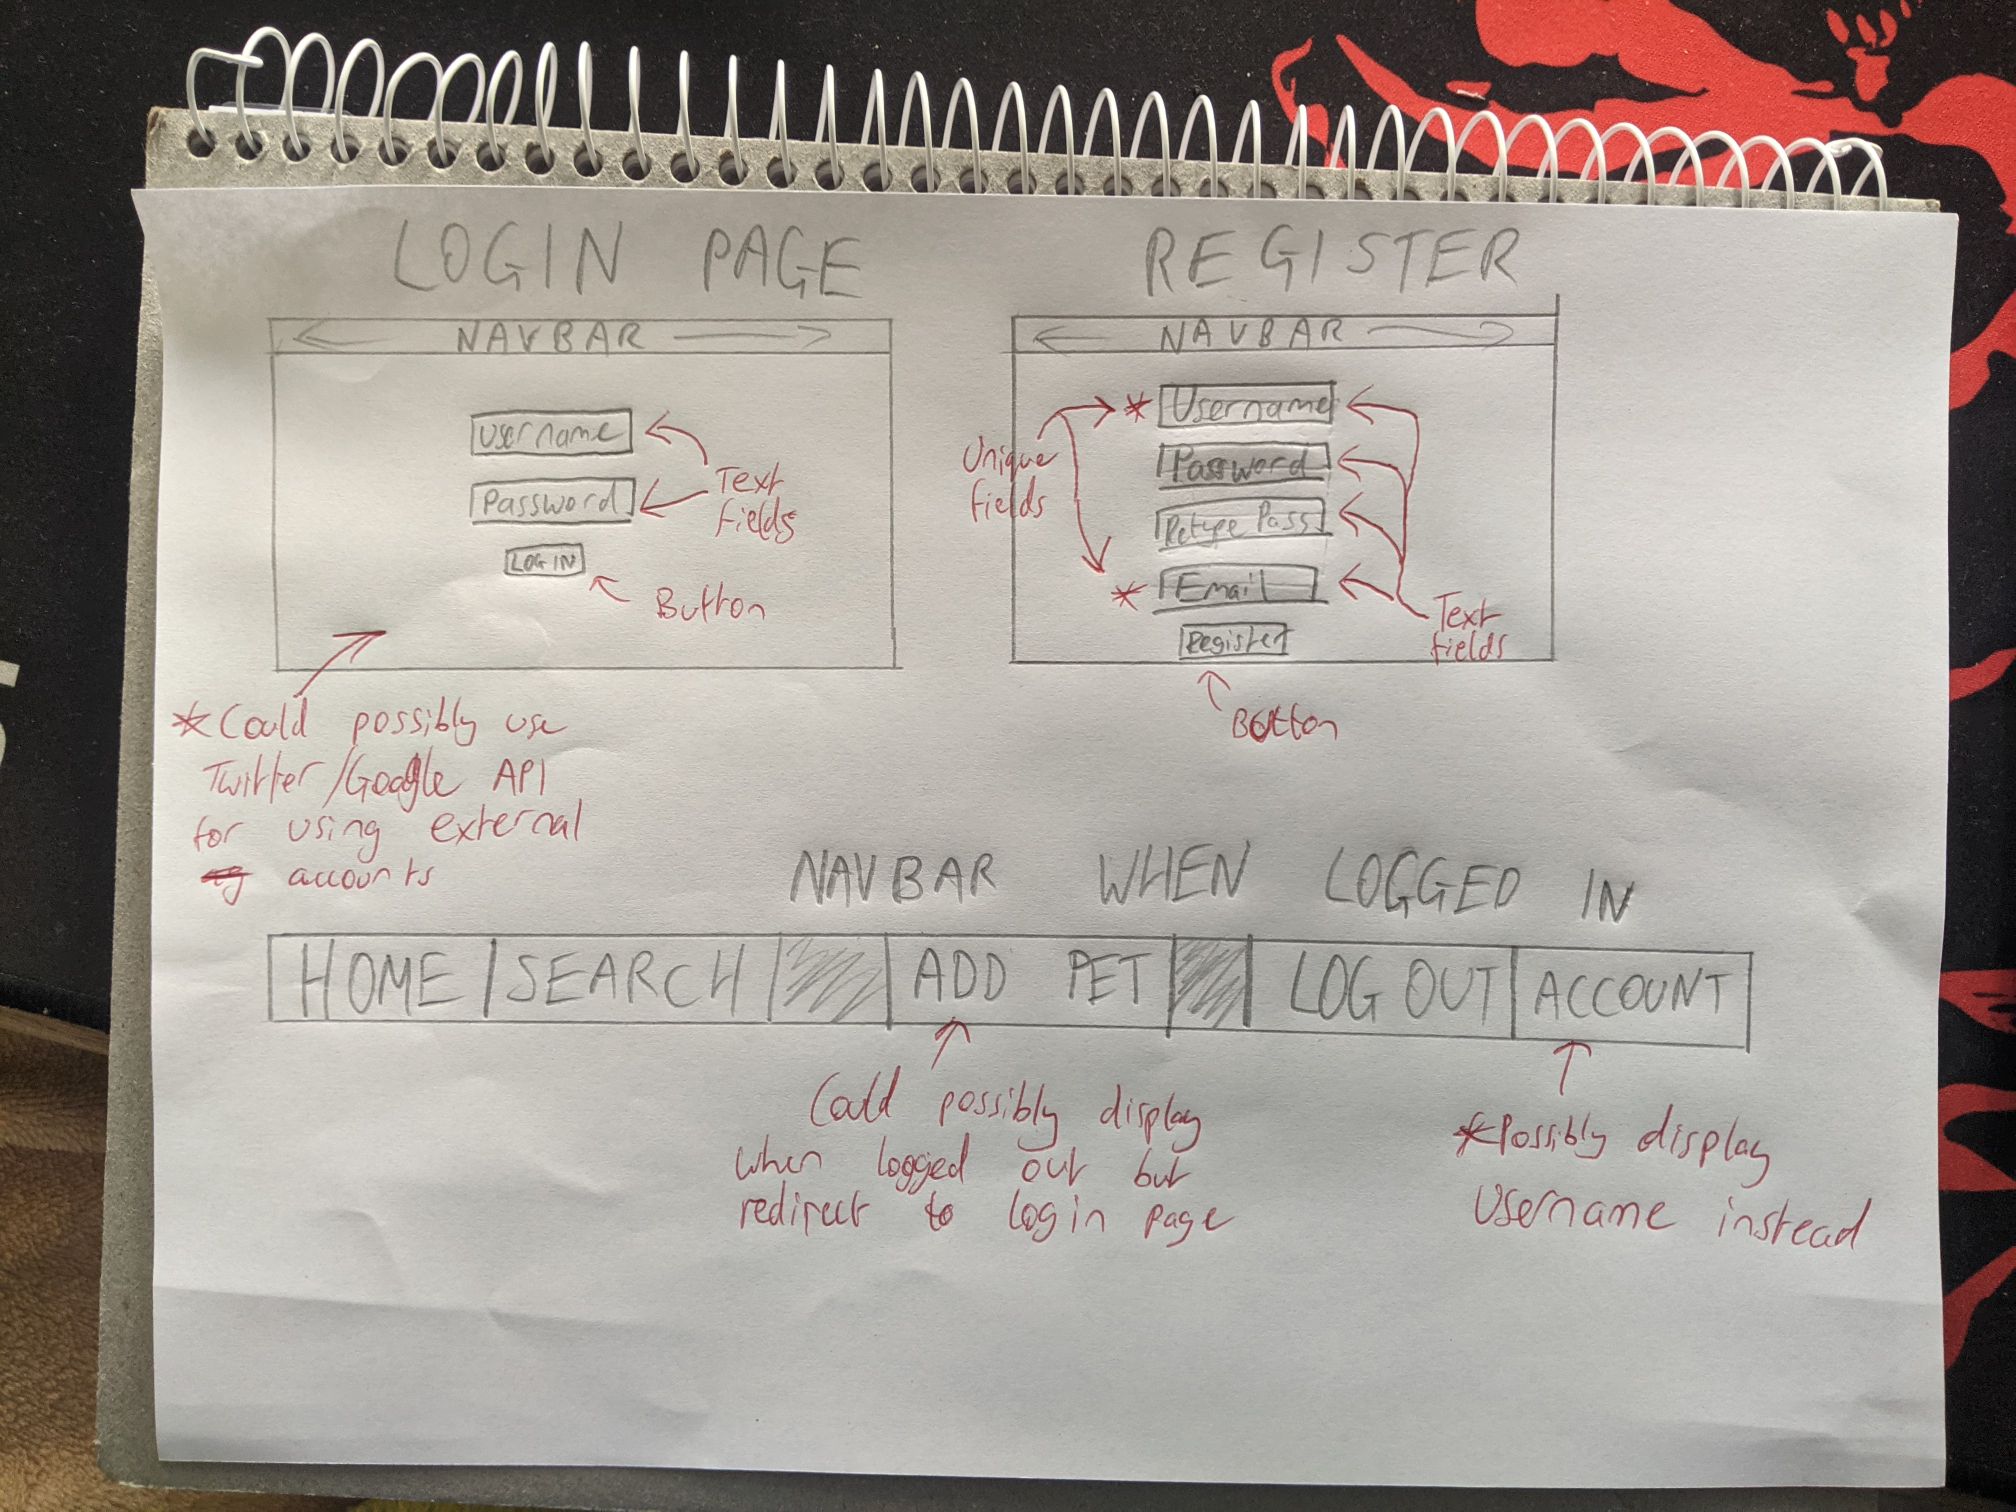 LOGIN PAGE
NAVBAR
Username
Password
LOG IN
Text
fields
Button
*Could possibly use
Twitter/Google API
for using external
accounts
REGISTER
NAVBAR
*Username
Password
Retype Pass
*Email
Register
Unique
fields
Text
fields
Button
NAVBAR WHEN LOGGED IN
HOME SEARCH ADD PET LOG OUT ACCOUNT
Could possibly display
when logged out but
redirect to login page
*Possibly display
Username instead